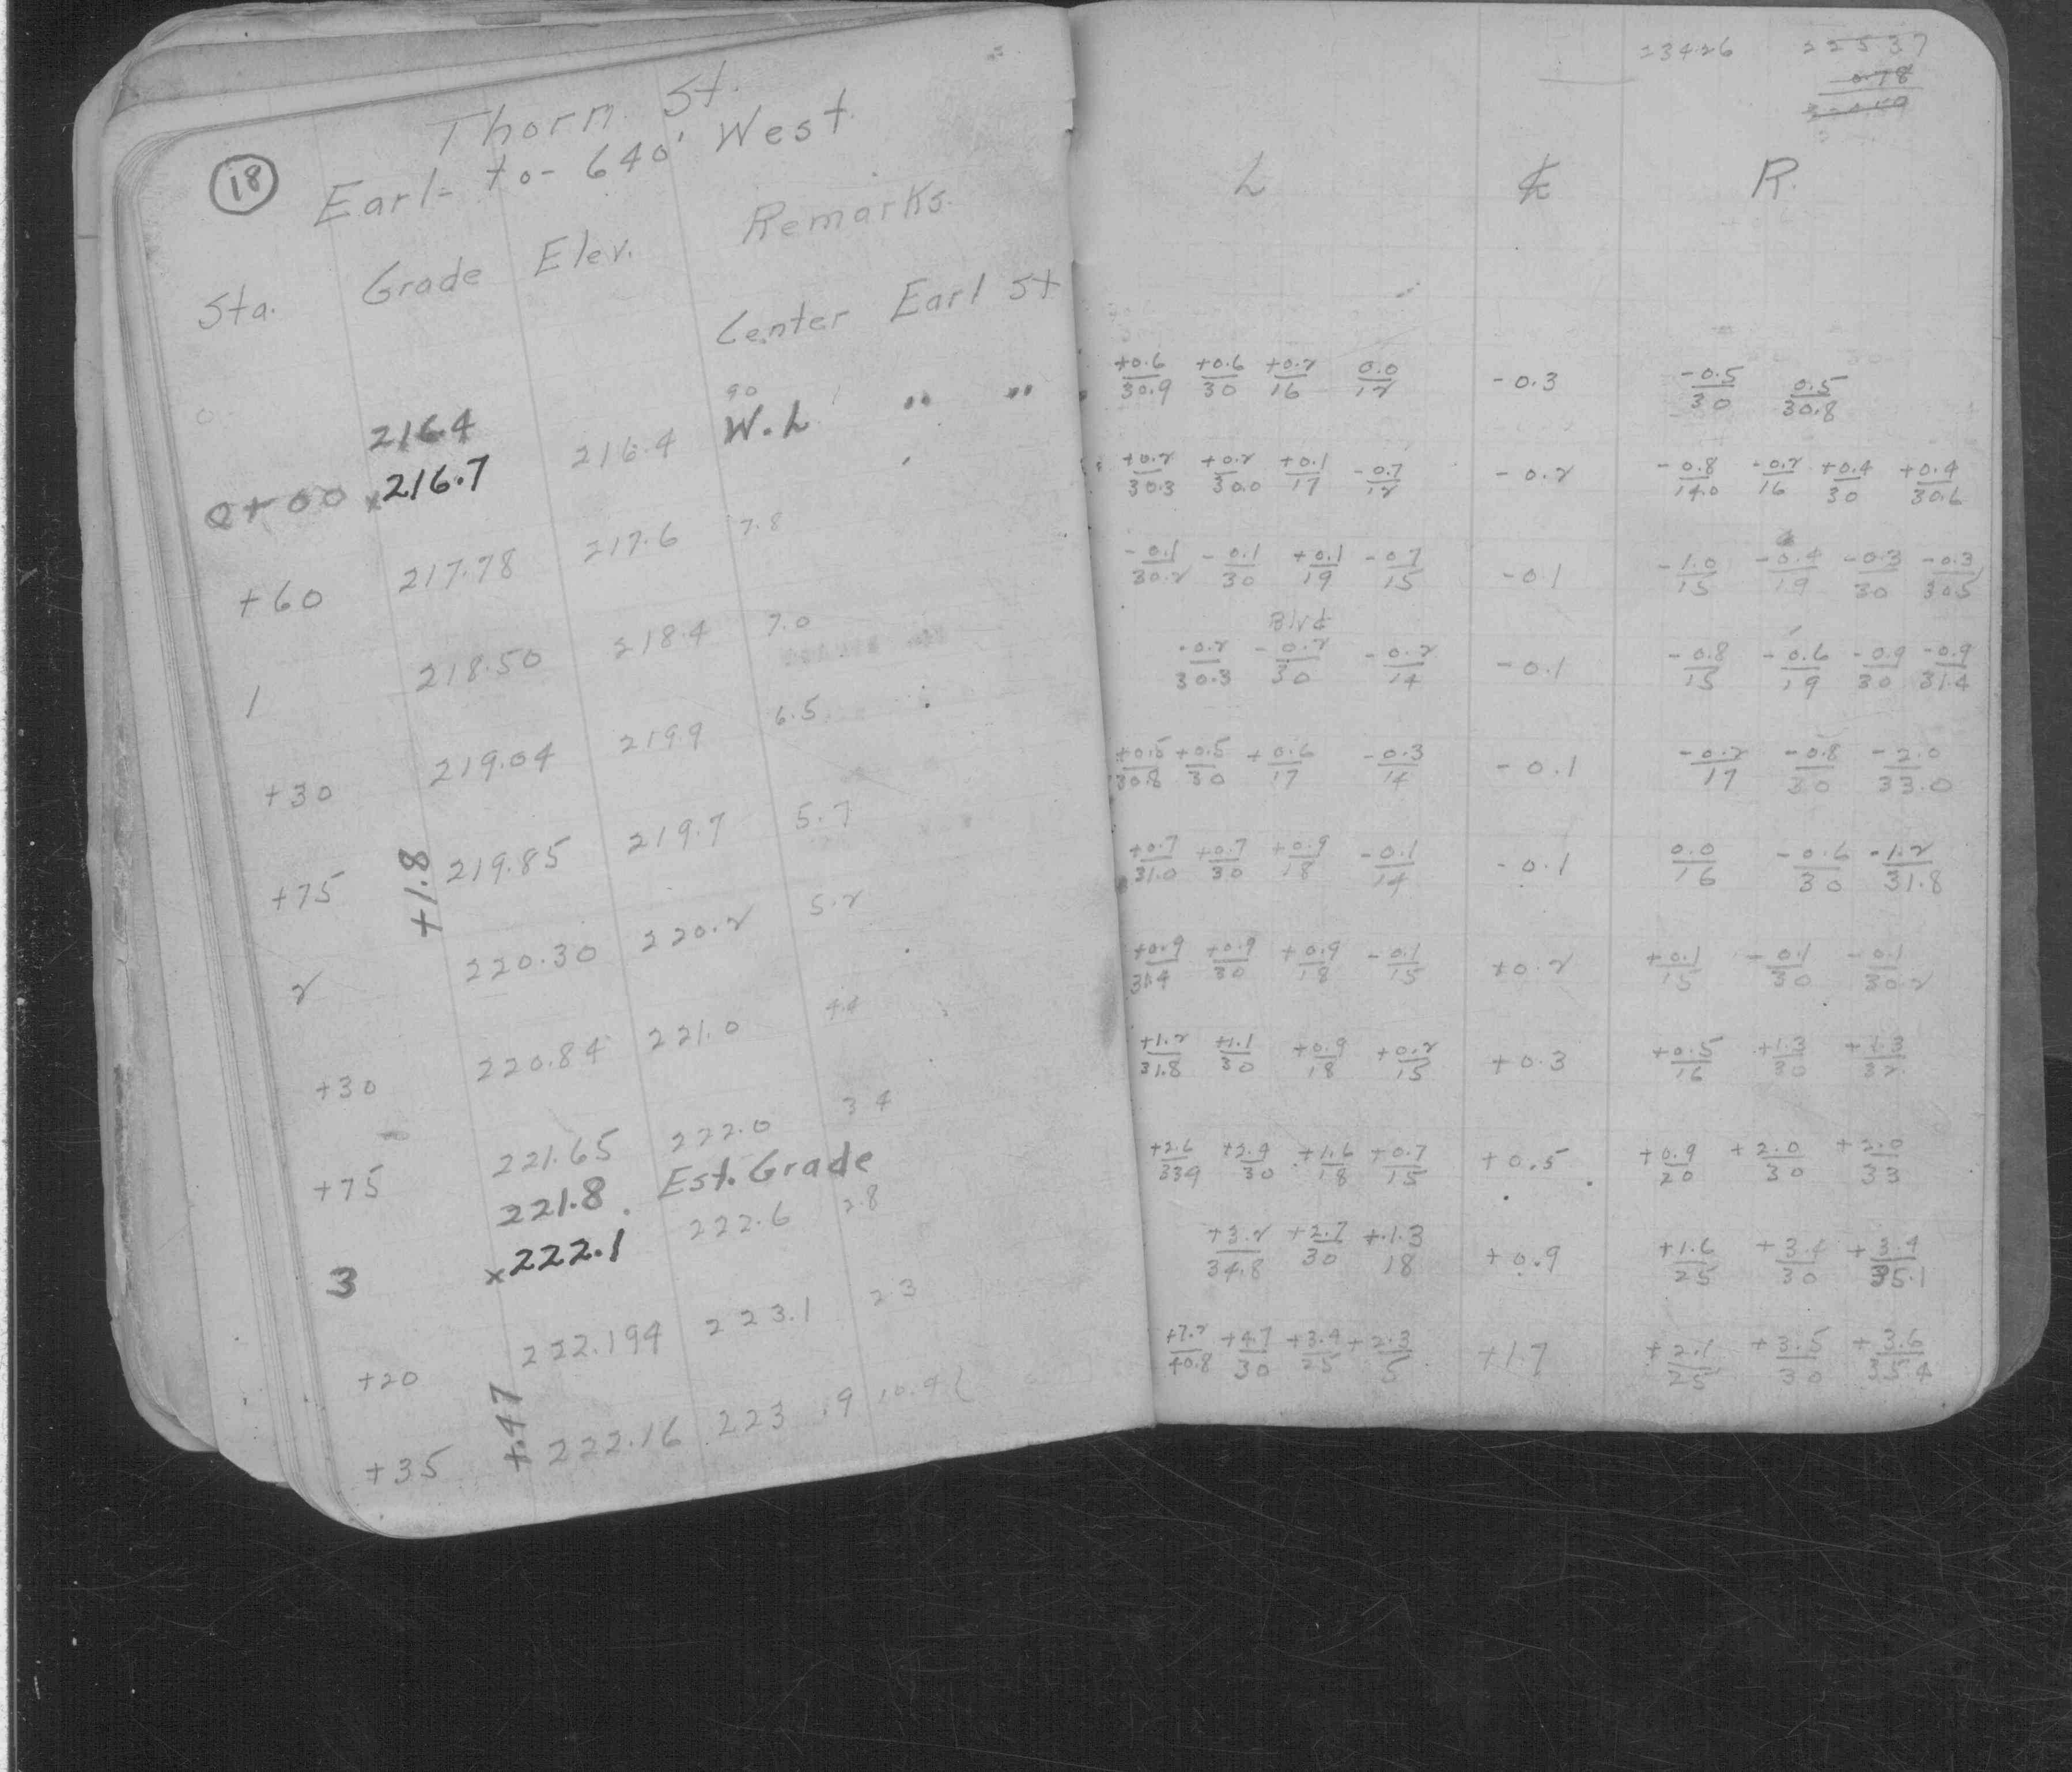 18
Thorn St.
Earl- to- 640' West
Sta. Grade Elev. Remarks.
Center Earl St
216.4 90
0+00 x216.7 216.4 W.L " "
+60 217.78 217.6 7.8
1 218.50 218.4 7.0
+30 219.04 219.9 6.5
+75 219.85 219.7 5.7
+1.8
2 220.30 220.2 5.2
+30 220.84 221.0 4.4
+75 221.65 222.0 3.4
221.8 Est. Grade
3 x222.1 222.6 2.8
+20 222.194 223.1 2.3
+.47
+35 222.16 223.9 10.4
23426 22537
0.78
L ℄ R.
+0.6/30.9 +0.6/30 +0.2/16 0.0/12 -0.3 -0.5/30 0.5/30.8
+0.2/30.3 +0.2/30.0 +0.1/17 -0.7/12 -0.2 -0.8/14.0 -0.2/16 +0.4/30 +0.4/30.6
-0.1/30.2 -0.1/30 +0.1/19 -0.7/15 -0.1 -1.0/15 -0.4/19 -0.3/30 -0.3/30.5
Blvd
-0.2/30.3 -0.2/30 -0.2/14 -0.1 -0.8/15 -0.6/19 -0.9/30 -0.9/31.4
+0.5/30.8 +0.5/30 +0.6/17 -0.3/14 -0.1 -0.2/17 -0.8/30 -2.0/33.0
+0.7/31.0 +0.7/30 +0.9/18 -0.1/14 -0.1 0.0/16 -0.6/30 -1.2/31.8
+0.9/31.4 +0.9/30 +0.9/18 -0.1/15 +0.2 +0.1/15 -0.1/30 -0.1/30.2
+1.2/31.8 +1.1/30 +0.9/18 +0.2/15 +0.3 +0.5/16 +1.3/30 +1.3/32
+2.6/33.9 +2.4/30 +1.6/18 +0.7/15 +0.5 +0.9/20 +2.0/30 +2.0/33
+3.2/34.8 +2.7/30 +1.3/18 +0.9 +1.6/25 +3.4/30 +3.4/35.1
+7.2/40.8 +4.7/30 +3.4/25 +2.3/5 +1.7 +2.1/25 +3.5/30 +3.6/35.4